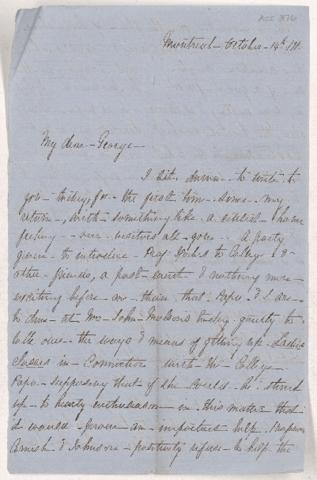 Montreal - October - 14th
My dear - George -
I sit down - to write to
you - today, for the first time - since my
return, with something like a settled - home
feeling - our festives all gone. A party
given to introduce - Prof to College &
other friends, a past event & nothing more
exciting before us than that Papa & I are
to dine - at Mr. John today - partly to
talk over the ways & means of getting up Ladies
Classes in - Connection with the College
Papa supposing that if she he stirred
up - to hearty enthusiasm - in this matter that
would prove an important help.
& Johnson - positively refuse - to help the